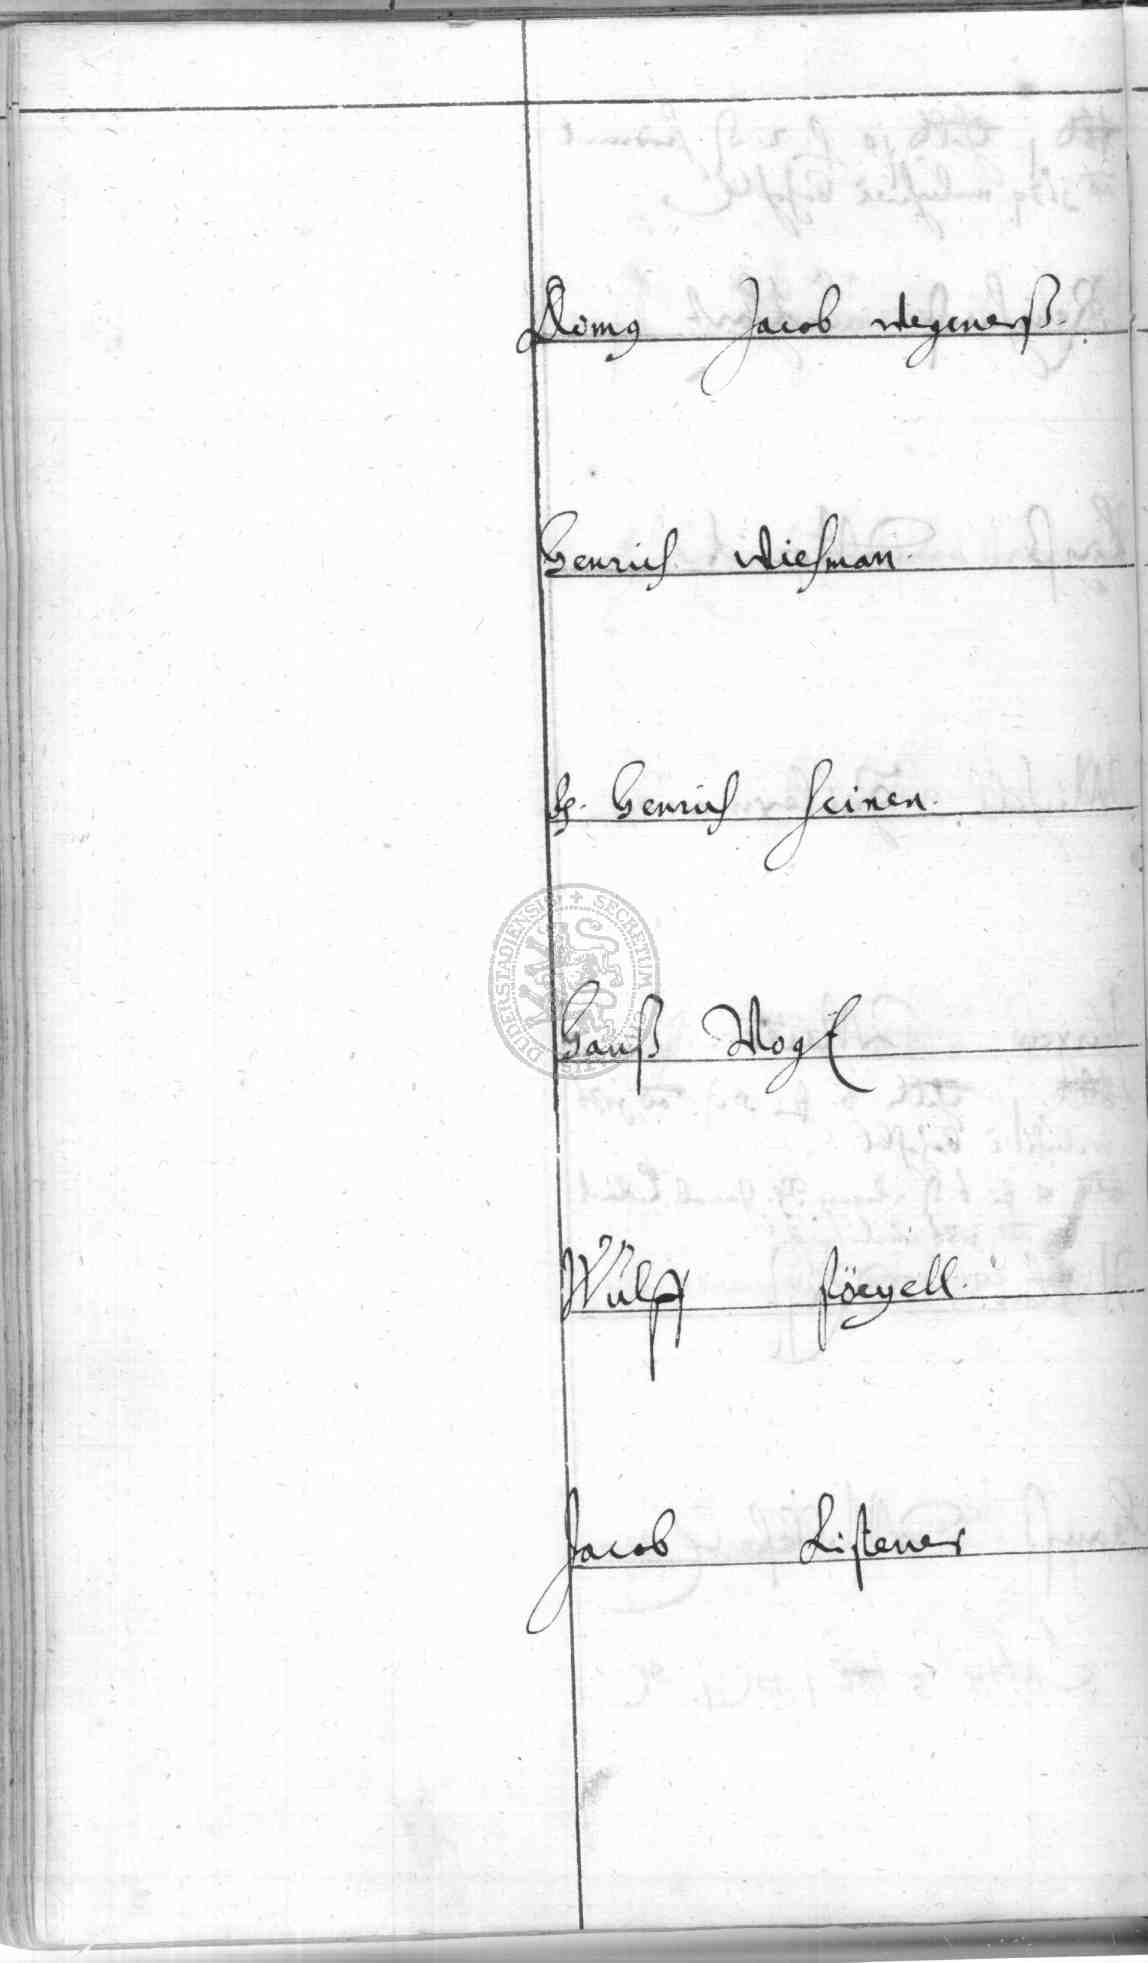 Domg Jacob Wegenerß.
Henrich Wiesman.
H. Henrich Heinen.
DUDERSTADIENSIS + SECRETUM
Hanß Vogt
Wulff
Jacob Listener